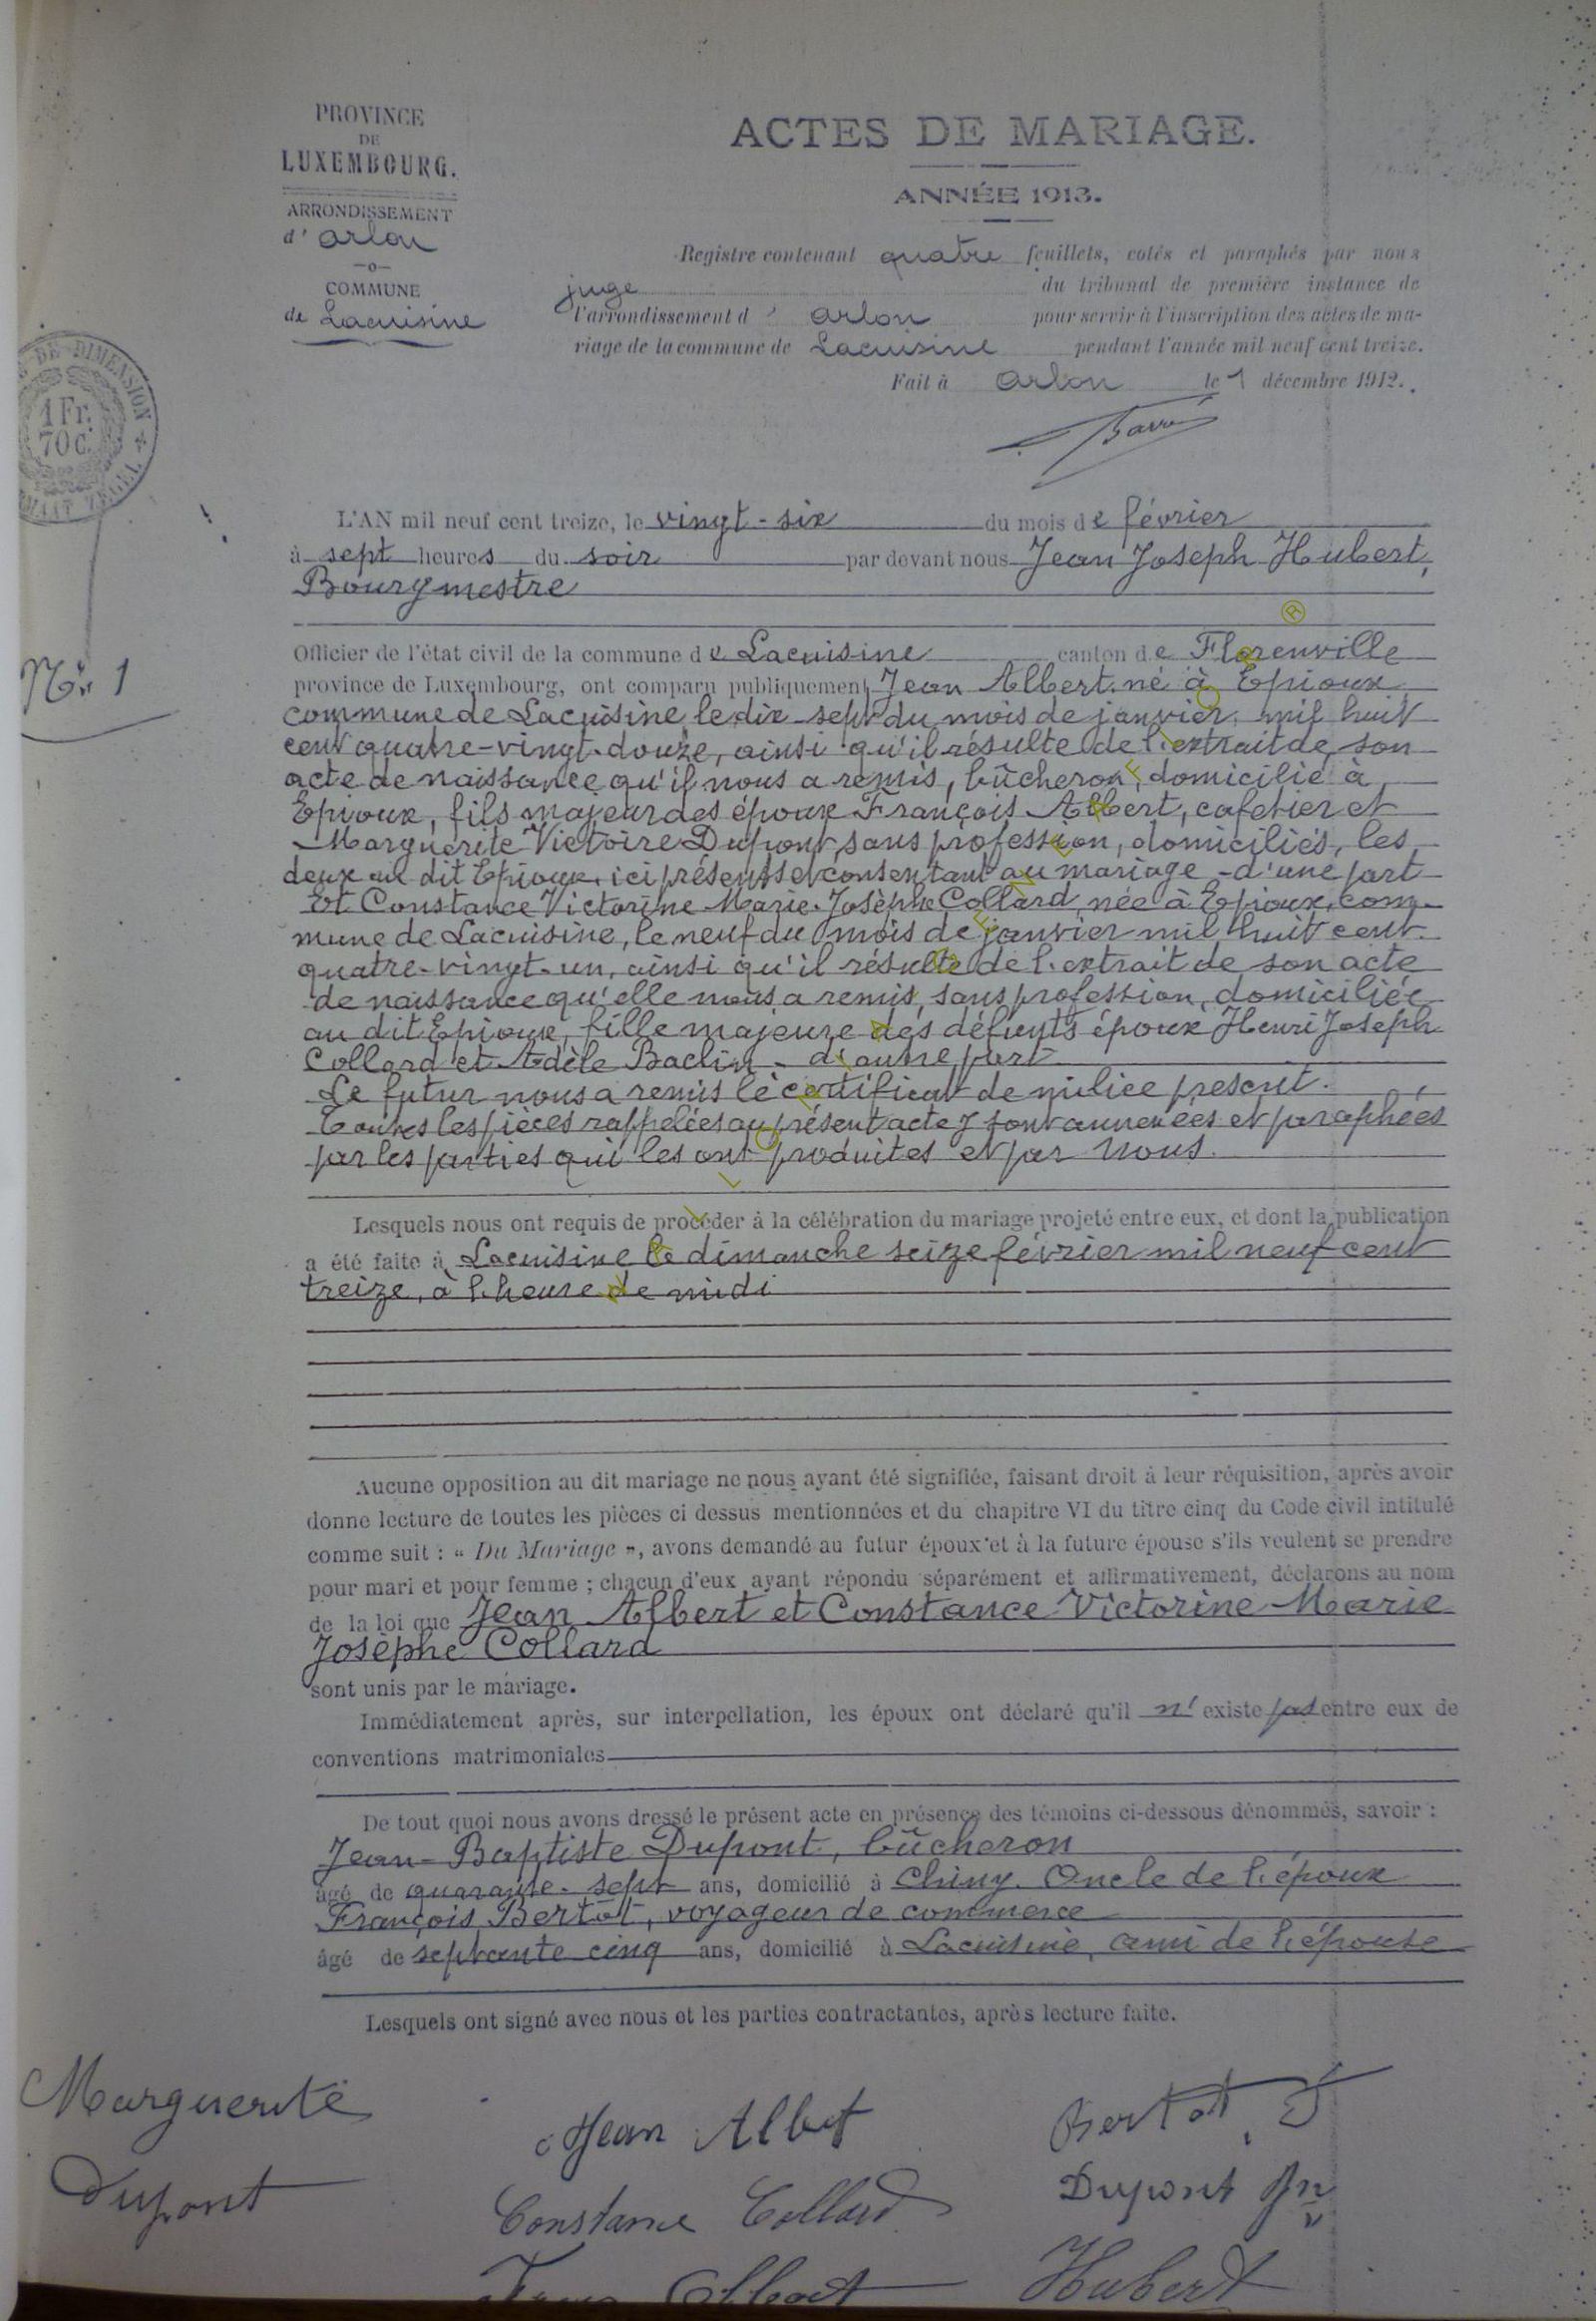 PROVINCE
DE
LUXEMBOURG.
ARRONDISSEMENT
d'Arlon
—o—
COMMUNE
de Lacuisine
DE DIMENSION
1 Fr.
70 c.
ACTES DE MARIAGE.
ANNÉE 1913.
Registre contenant quatre feuillets, cotés et paraphés par nous
juge du tribunal de première instance de
l'arrondissement d'Arlon pour servir à l'inscription des actes de ma-
riage de la commune de Lacuisine pendant l'année mil neuf cent treize.
Fait à Arlon le 1 décembre 1912.
N° 1
L'AN mil neuf cent treize, le vingt-six du mois de février
à sept heures du soir par devant nous Jean Joseph Hubert,
Bourgmestre
Officier de l'état civil de la commune de Lacuisine canton de Florenville
province de Luxembourg, ont comparu publiquement Jean Albert. né à Epioux
commune de Lacuisine le dix-sept du mois de janvier mil huit
cent quatre-vingt-douze, ainsi qu'il résulte de l'extrait de son
acte de naissance qu'il nous a remis, bûcheron, domicilié à
Epioux, fils majeur des époux François Albert, cafetier et
Marguerite Victoire Dupont, sans profession, domiciliés, les
deux au dit Epioux, ici présents et consentant au mariage - d'une part
Et Constance Victorine Marie-Josèphe Collard, née à Epioux, com-
mune de Lacuisine, le neuf du mois de janvier mil huit cent
quatre-vingt-un, ainsi qu'il résulte de l'extrait de son acte
de naissance qu'elle nous a remis, sans profession, domiciliée
au dit Epioux, fille majeure des défunts époux Henri Joseph
Collard et Adèle Baclin - d'autre part
Le futur nous a remis le certificat de milice prescrit.
Toutes les pièces rappelées au présent acte y sont annexées et paraphées
par les parties qui les ont produites et par nous.
Lesquels nous ont requis de procéder à la célébration du mariage projeté entre eux, et dont la publication
a été faite à Lacuisine le dimanche seize février mil neuf cent
treize, à l'heure de midi
Aucune opposition au dit mariage ne nous ayant été signifiée, faisant droit à leur réquisition, après avoir
donne lecture de toutes les pièces ci dessus mentionnées et du chapitre VI du titre cinq du Code civil intitulé
comme suit : « Du Mariage », avons demandé au futur époux et à la future épouse s'ils veulent se prendre
pour mari et pour femme ; chacun d'eux ayant répondu séparément et affirmativement, déclarons au nom
de la loi que Jean Albert et Constance Victorine Marie
Josèphe Collard
sont unis par le mariage.
Immédiatement après, sur interpellation, les époux ont déclaré qu'il n'existe pas entre eux de
conventions matrimoniales
De tout quoi nous avons dressé le présent acte en présence des témoins ci-dessous dénommés, savoir :
Jean-Baptiste Dupont, bûcheron
âgé de quarante-sept ans, domicilié à Chiny. Oncle de l'époux
François Bertôt, voyageur de commerce
âgé de septante cinq ans, domicilié à Lacuisine, ami de l'épouse
Lesquels ont signé avec nous et les parties contractantes, après lecture faite.
Marguerite
Dupont
Jean Albert
Constance Collard
Albert
Bertot F
Dupont Jn
Hubert